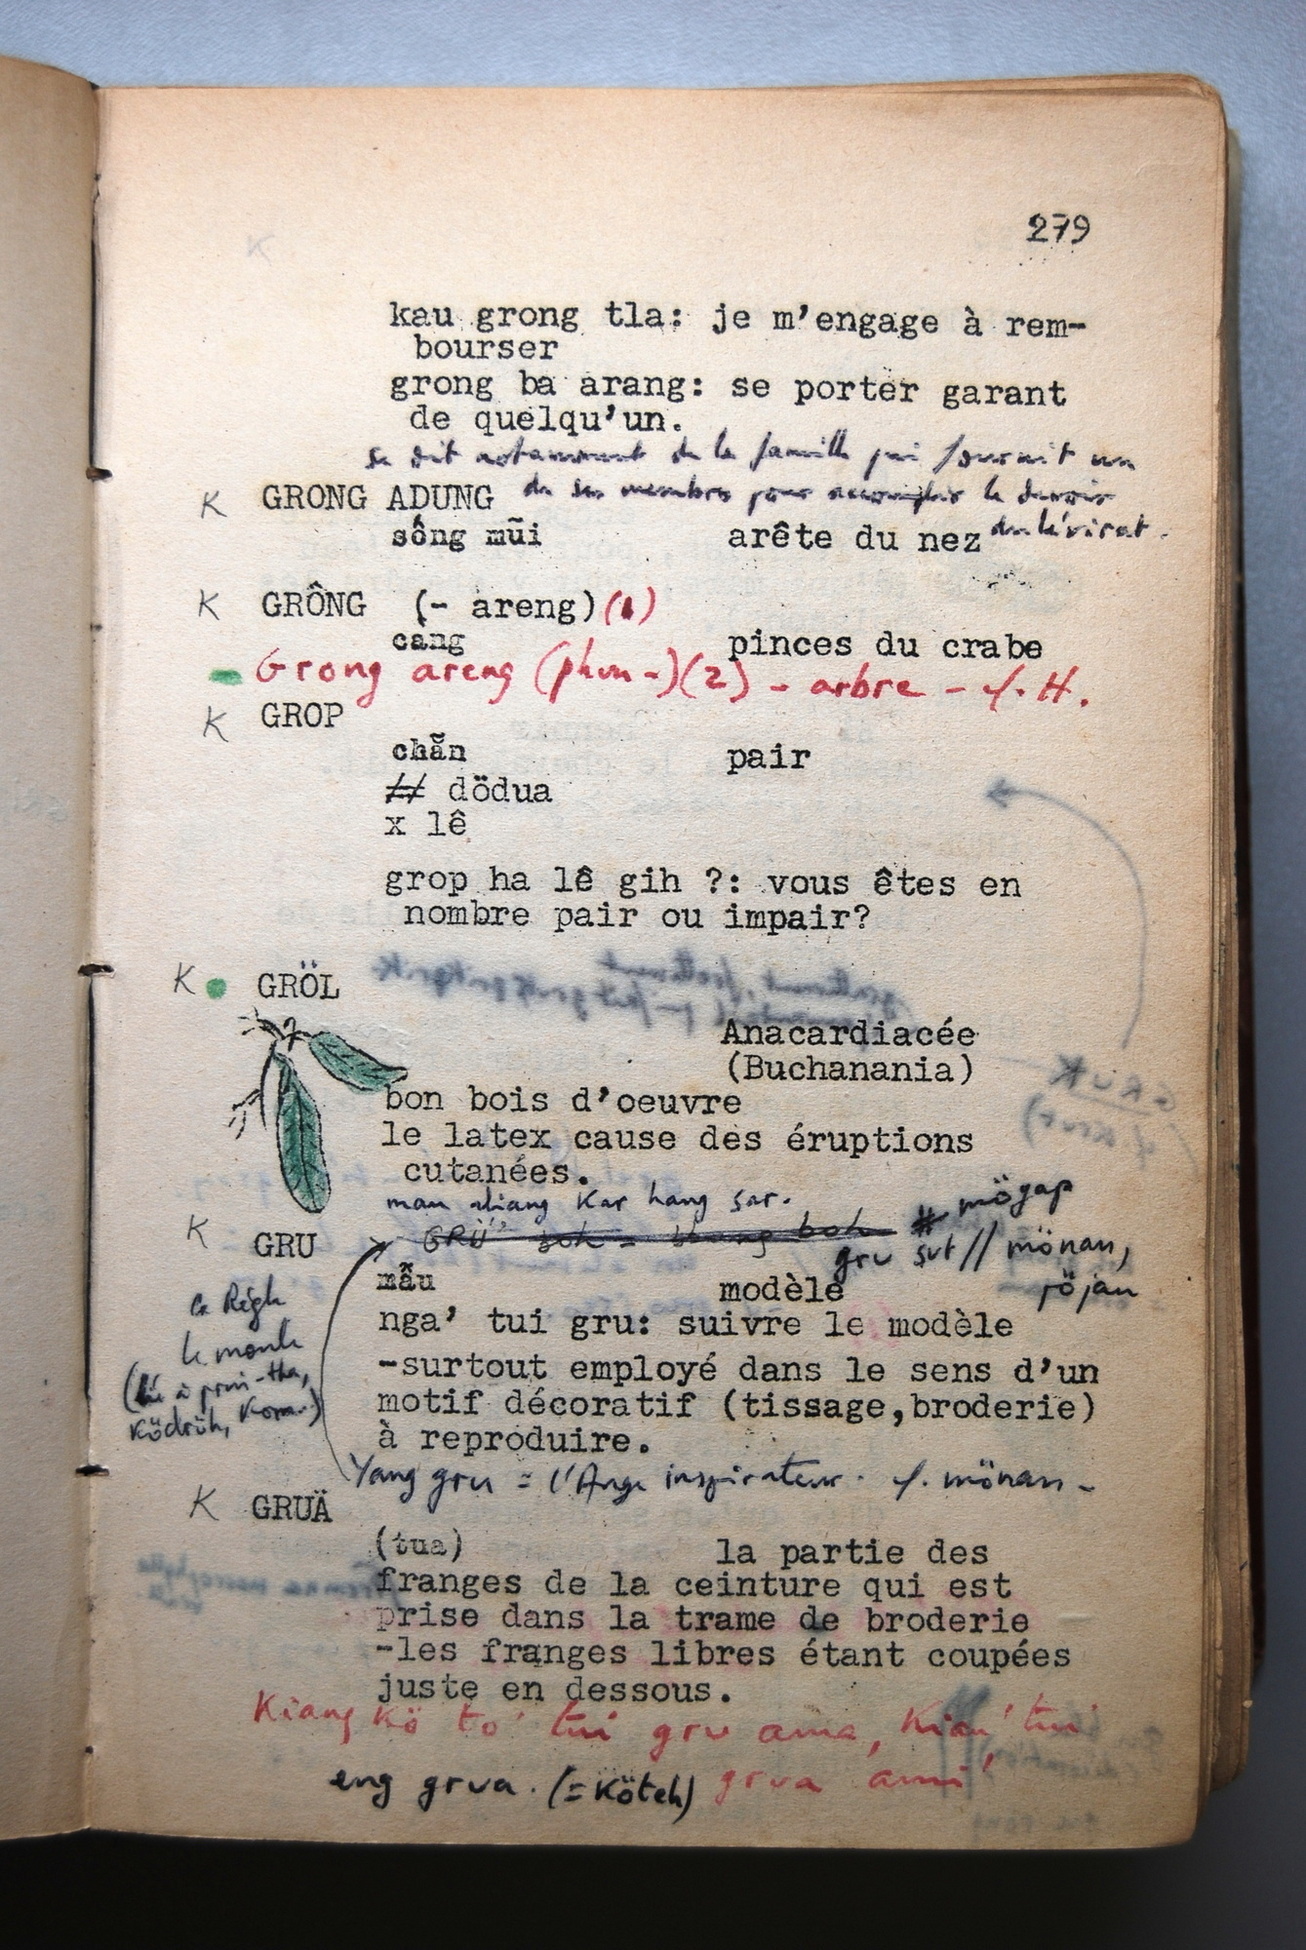 279
kau grong tla: je m'engage à rem-
bourser
grong ba arang: se porter garant
de quelqu'un.
se dit notamment de la famille qui fournit un
de ses membres pour accomplir le devoir
du lévirat.
K GRONG ADUNG
sông mũi arête du nez
K GRÔNG (- areng)(1)
càng pinces du crabe
Grong areng (phun-)(2) - arbre - cf. H.
K GROP
chẵn pair
# dödua
x lê
grop ha lê gih ?: vous êtes en
nombre pair ou impair?
K GRÖL
Anacardiacée
(Buchanania)
bon bois d'oeuvre
le latex cause des éruptions
cutanées.
kar hang sar.
K GRU
# mögap
gru sut // mönan,
jöjan
mẫu modèle
nga' tui gru: suivre le modèle
-surtout employé dans le sens d'un
motif décoratif (tissage,broderie)
à reproduire.
la Règle
le monde
ködröh,
Yang gru = l'Ange inspirateur. cf. mönan-
K GRUÄ
(tua) la partie des
franges de la ceinture qui est
prise dans la trame de broderie
-les franges libres étant coupées
juste en dessous.
Kiang kö to' tui gru ama, kian' tui
eng grua. (=Köteh) grua ami'